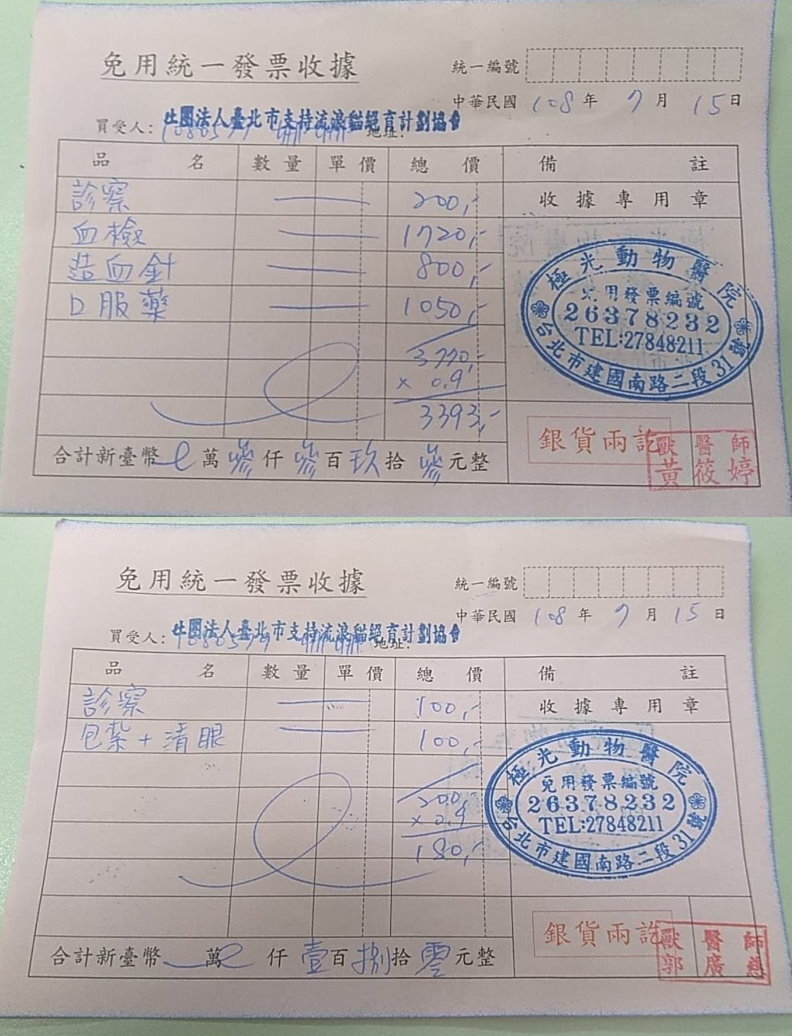 免用統一發票收據
統一編號
中華民國 108 年 7 月 15 日
買受人: 社團法人臺北市支持流浪貓絕育計劃協會 地址:
品 名 數量 單價 總 價 備 註
診察 200,- 收據專用章
血檢 1720,-
造血針 800,-
口服藥 1050,-
3770,-
x 0.9
3393,-
極光動物醫院
免用發票編號
26378232
TEL:27848211
台北市建國南路二段31號
銀貨兩訖
獸醫師
黃筱婷
合計新臺幣 萬 參 仟 參 百 玖 拾 參 元整
免用統一發票收據
統一編號
中華民國 108 年 7 月 15 日
買受人: 社團法人臺北市支持流浪貓絕育計劃協會 地址:
品 名 數量 單價 總 價 備 註
診察 100,- 收據專用章
包紮+清眼 100,-
200,-
x 0.9
180,-
極光動物醫院
免用發票編號
26378232
TEL:27848211
台北市建國南路二段31號
銀貨兩訖
獸醫師
郭廣慈
合計新臺幣 萬 仟 壹 百 捌 拾 零 元整